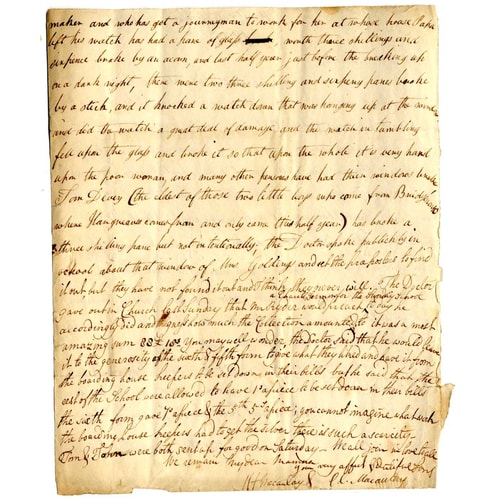 maker and who has got a journyman to work for her at whose house Papa
left his watch has had a pane of glass worth three shillings and
sixpence broke by an acorn, and last half year just before the breaking up
on a dark night, there were two three shilling and sixpenny panes broke
by a stick, and it knocked a watch down that was hanging up at the window
and did the watch a great deal of damage, and the watch in tumbling
fell upon the glass and broke it, so that upon the whole it is very hard
upon the poor woman, and many other persons have had their windows broke
Tom Devey (the eldest of those two little boys who come from
where Hargreaves comes from and only came this half year) has broke a
three shilling pane but not intentionally, the Doctor spoke publickly in
school about that window of Mrs Goldings and set the præpostors to find
it out but they have not found it out and I think they never will. The Doctor
gave out in Church last Sunday that Mr would preach to day he
a Charity Sermon for the Sunday School
accordingly did and how much the Collection amounted to it was a most
amazing sum You may well wonder, the Doctor said that he would leave
it to the generosity of the sixth & fifth form to give what they liked and have it from
the boarding house keepers & be set down in their bills but he said that the
rest of the School were allowed to have 1s apiece to be set down in their bills
the sixth form gave apiece & the 5th 5s apiece; you cannot imagine what work
the boarding house keepers had to get the silver there is such a scarcity
Tom & John were both sent up for good on Saturday - We all join in love
We remain my dear Mamma your very affect & dutiful Sons
Macaulay & C Macaulay